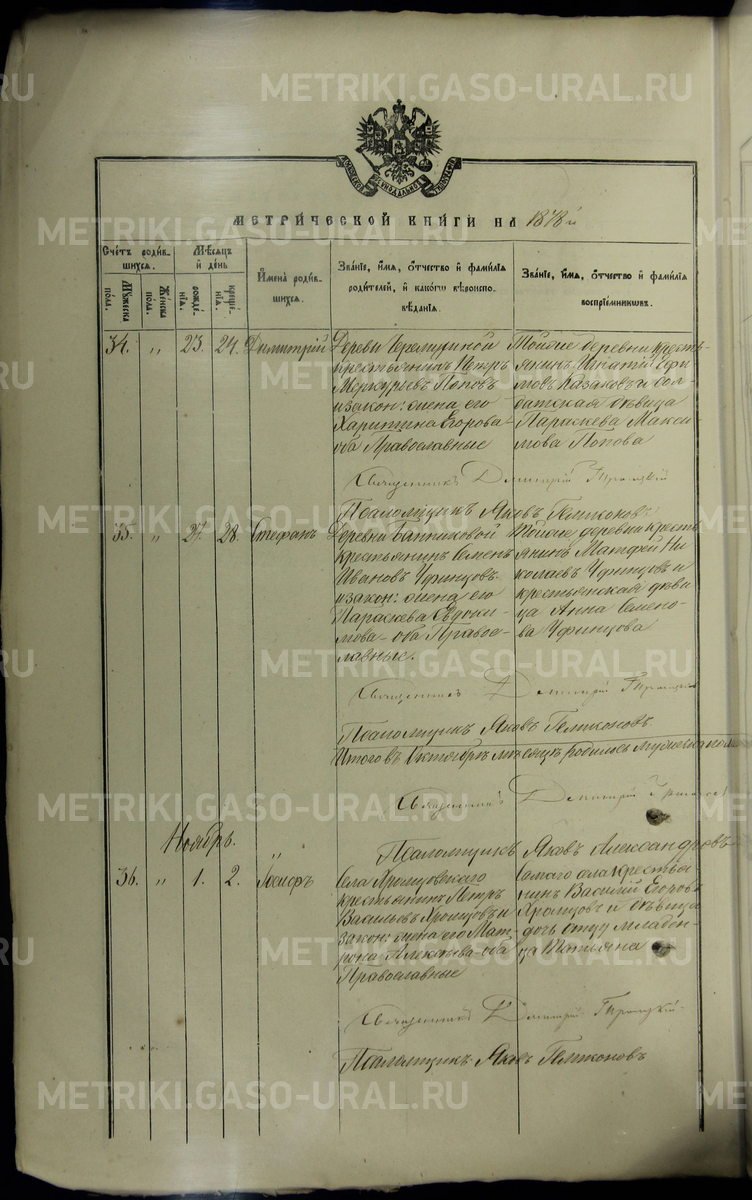 МЕТРИЧЕСКОЙ КНИГИ НА 1878 й
Счетъ родившихся.
Мужеска пола.
Женска пола.
Мѣсяцъ и день
рожденія.
крещенія.
Имена родившихся.
Званіе, имя, отчество и фамилія родителей, и какого вѣроисповѣданія.
Званіе, имя, отчество и фамилія воспріемниковъ.
34. " 23. 24. Димитрій
крестьянинъ Петръ
Меркурьевъ Поповъ
и закон: жена его
Харитина Егорова
оба Православные
Тойже деревни кресть-
янинъ Игнатій
Казаковъ и сол-
датская дѣвица
Параскева Макси-
мова Попова
Священникъ Димитрій Троицкій
Псаломщикъ Яковъ
35. " 27. 28. Стефанъ
Деревни Банниковой
крестьянинъ Семенъ
Ивановъ Уфинцовъ
и закон: жена его
Параскева Евдоки-
мова - оба Право-
славные.
Тойже деревни кресть
янинъ Матфей Ни
колаевъ Уфинцовъ и
крестьянская дѣви
ца Анна Семено-
ва Уфинцова
Священникъ Димитрій Троицкій
Псаломщикъ Яковъ
Итого въ Октябрѣ мѣсяцѣ родилось
Священникъ Димитрій
Ноябрь.
Псаломщикъ Яковъ Александровъ
36. " 1. 2.
Села Хромцовскаго
крестьянинъ Петръ
Васильевъ Хромцовъ и
закон: жена его Мат
рона Алексѣева - оба
Православные
самаго села крестья-
нинъ Василій Егоровъ
Хромцовъ и дѣвица
дочь отцу младен-
ца Татьяна
Священникъ Димитрій Троицкій
Псаломщикъ Яковъ
METRIKI.GASO-URAL.RU